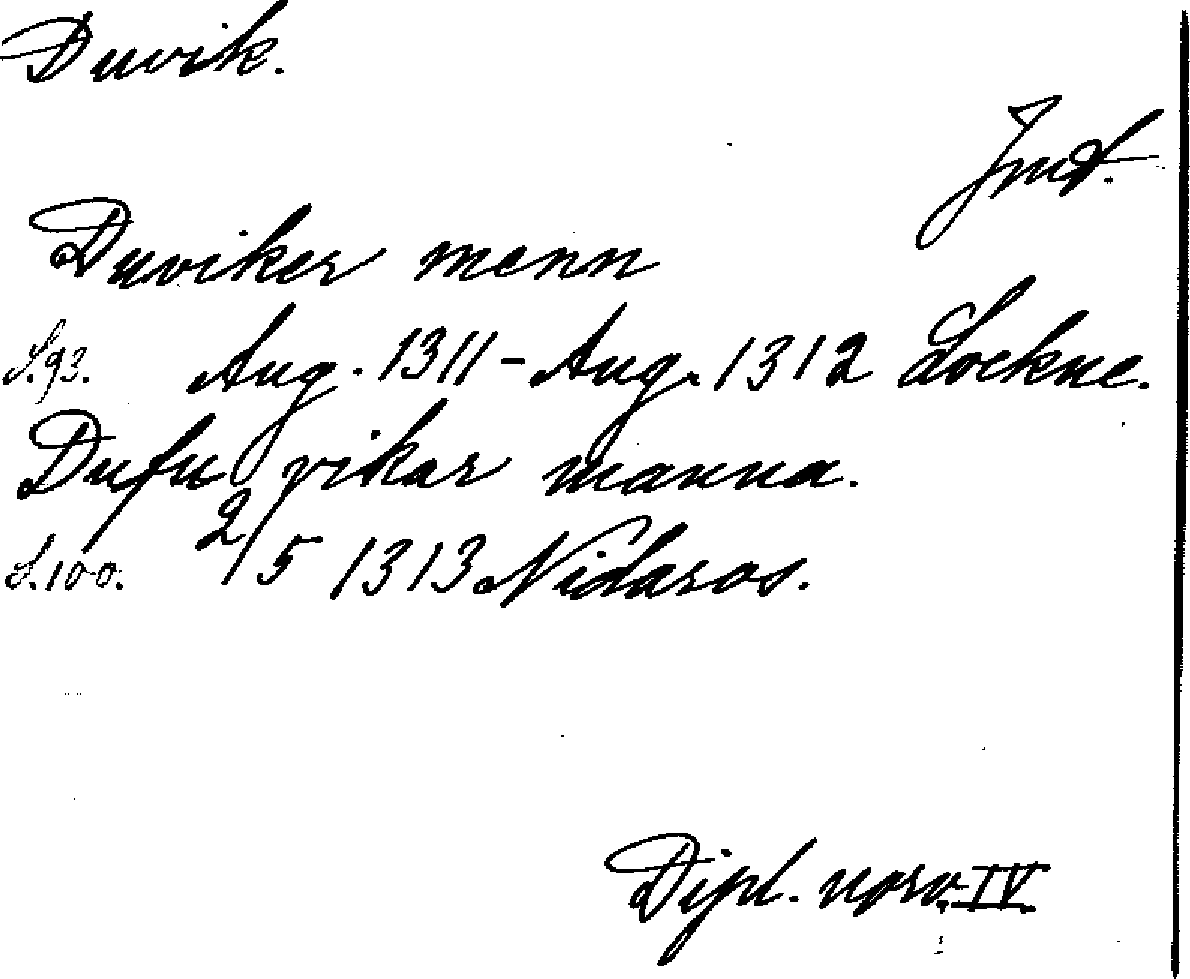 Duvik.
Jmt.
Duviker menn
S.93. Aug. 1311 - Aug. 1312 Lockne.
Dufu vikar manna.
S.100. 2/5 1313 Nidaros.
Dipl. norv. IV.